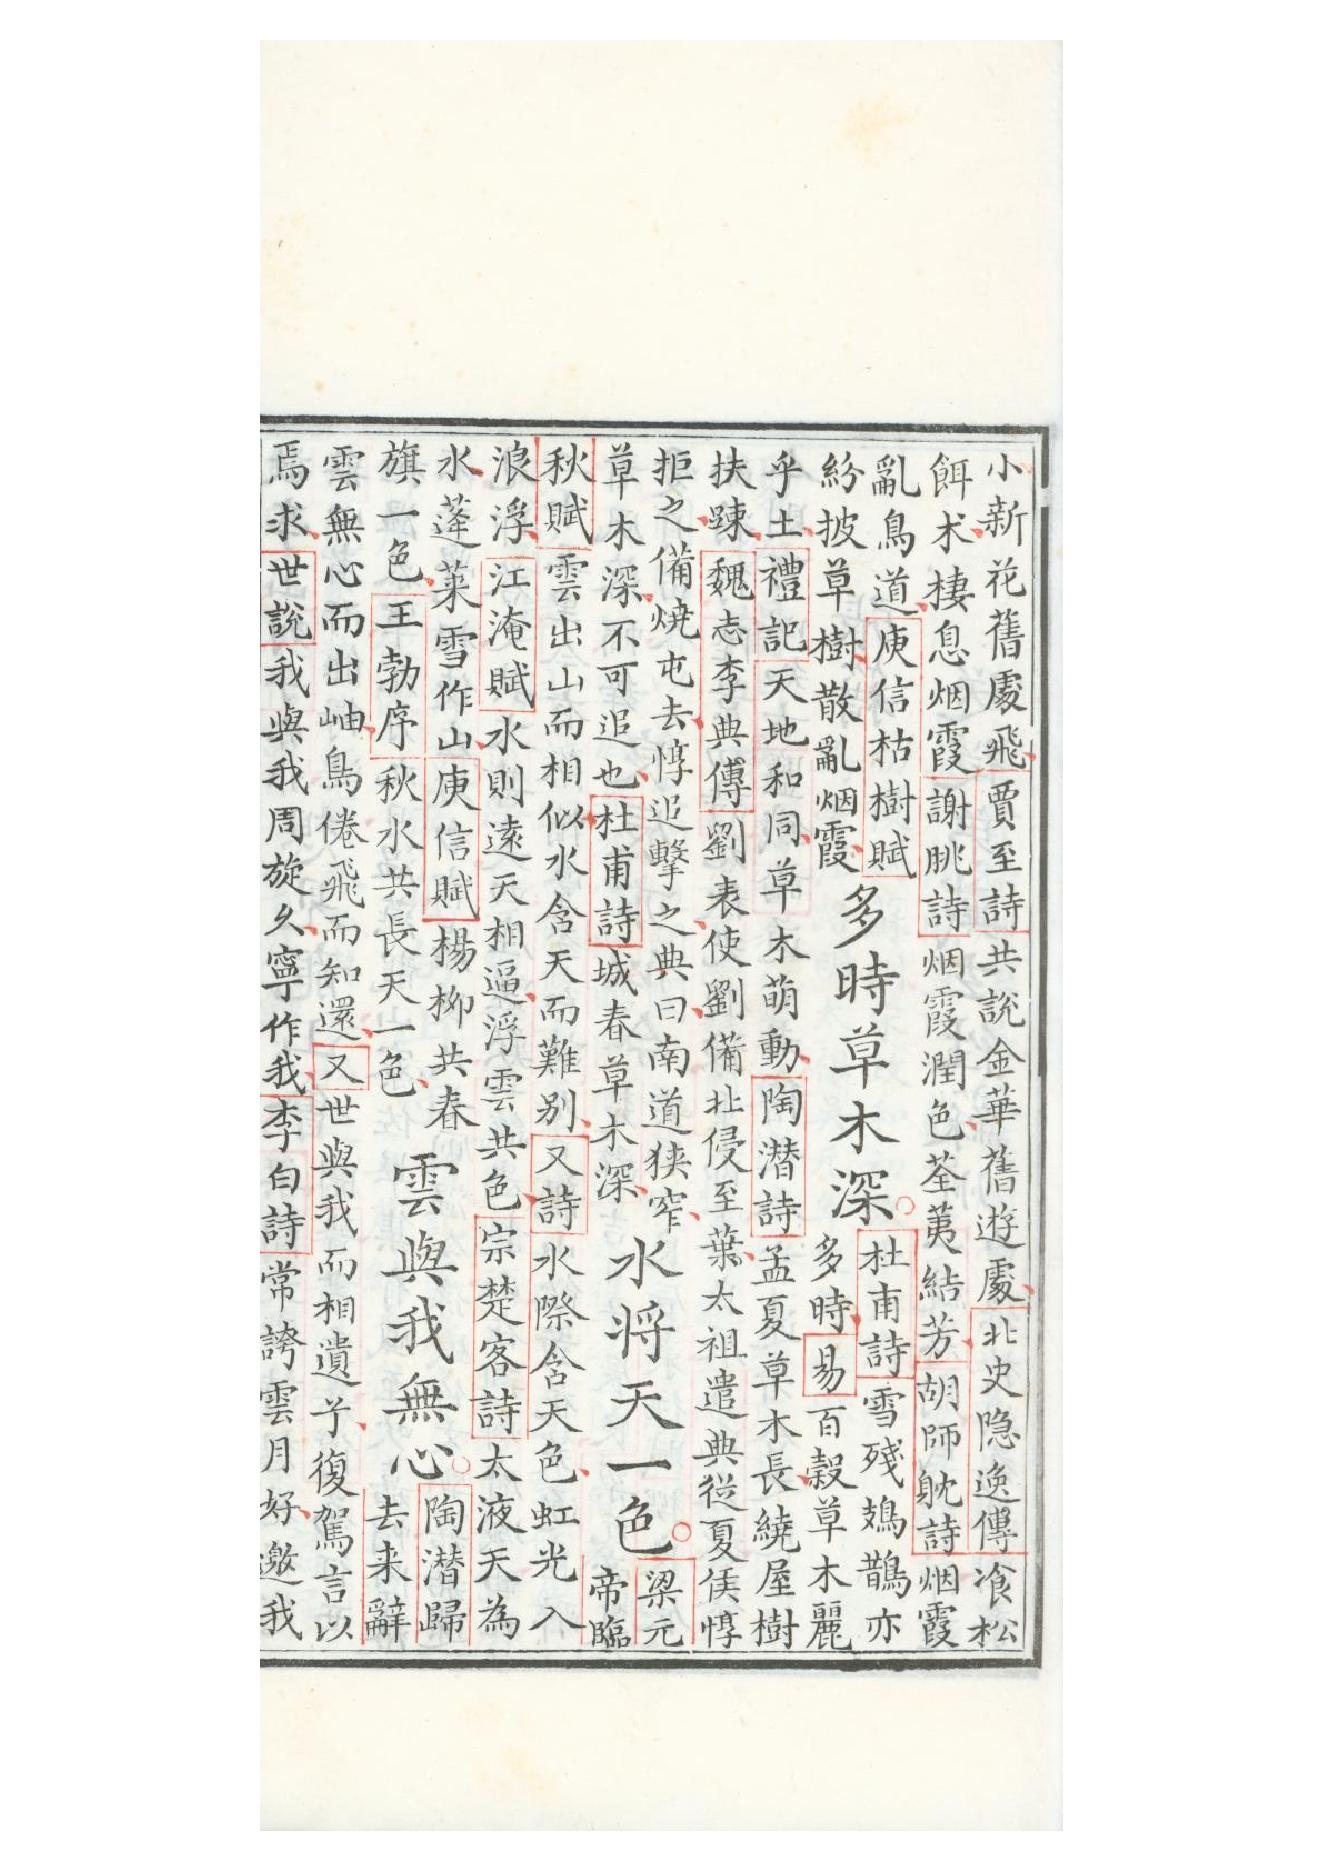 小新花舊處飛賈至詩共說金華舊遊處北史隐逸傳飡松
餌术棲息烟霞謝朓詩烟霞潤色荃荑結芳胡師躭詩烟霞
亂鳥道庾信枯樹賦
紛披草樹散亂烟霞
多時草木深
杜甫詩雪殘鳷鵲亦
多時易百穀草木麗
乎土禮記天地和同草木萌動陶潛詩孟夏草木長繞屋樹
扶踈魏志李典傳劉表使劉備北侵至葉太祖遣典從夏侯惇
拒之備燒屯去惇追擊之典曰南道狹窄
草木深不可追也杜甫詩城春草木深
水將天一色
梁元
帝臨
秋賦雲出山而相似水含天而難别又詩水際含天色虹光入
浪浮江淹賦水則遠天相逼浮雲共色宗楚客詩太液天為
水蓬萊雪作山庾信賦楊柳共春
旗一色王勃序秋水共長天一色
雲與我無心
陶潛歸
去来辭
雲無心而出岫鳥倦飛而知還又世與我而相遺兮復駕言以
焉求世說我與我周旋久寧作我李白詩常誇雲月好邀我